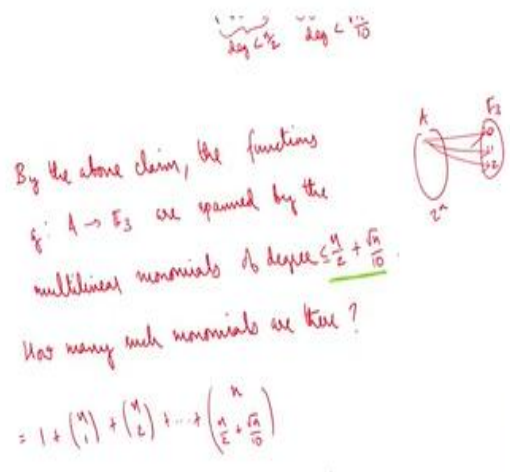 deg < n/2 deg < √n/10
A F₃
0
1
2
2ⁿ
By the above claim, the functions
g: A → F₃ are spanned by the
multilinear monomials of degree ≤ n/2 + √n/10.
How many such monomials are there?
= 1 + (n 1) + (n 2) + ... + (n n/2 + √n/10)